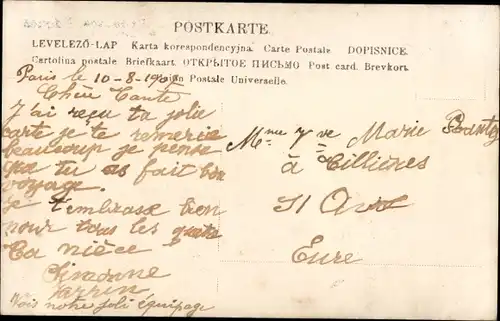 POSTKARTE.
LEVELEZŐ-LAP Karta korespondencyjna. Carte Postale DOPISNICE.
Cartolina postale Briefkaart. ОТКРЫТОЕ ПИСЬМО Post card. Brevkort.
Union Postale Universelle.
Paris le 10-8-
Chère Tante
J'ai reçu ta jolie
carte je te remercie
beaucoup je pense
que tu as fait bon
voyage.
Je t'embrasse bien
pour tous les quatre
Ta nièce
Simonne
Vois notre joli équipage
Mme Vve Marie
à Tillières
S/ Avre
Eure